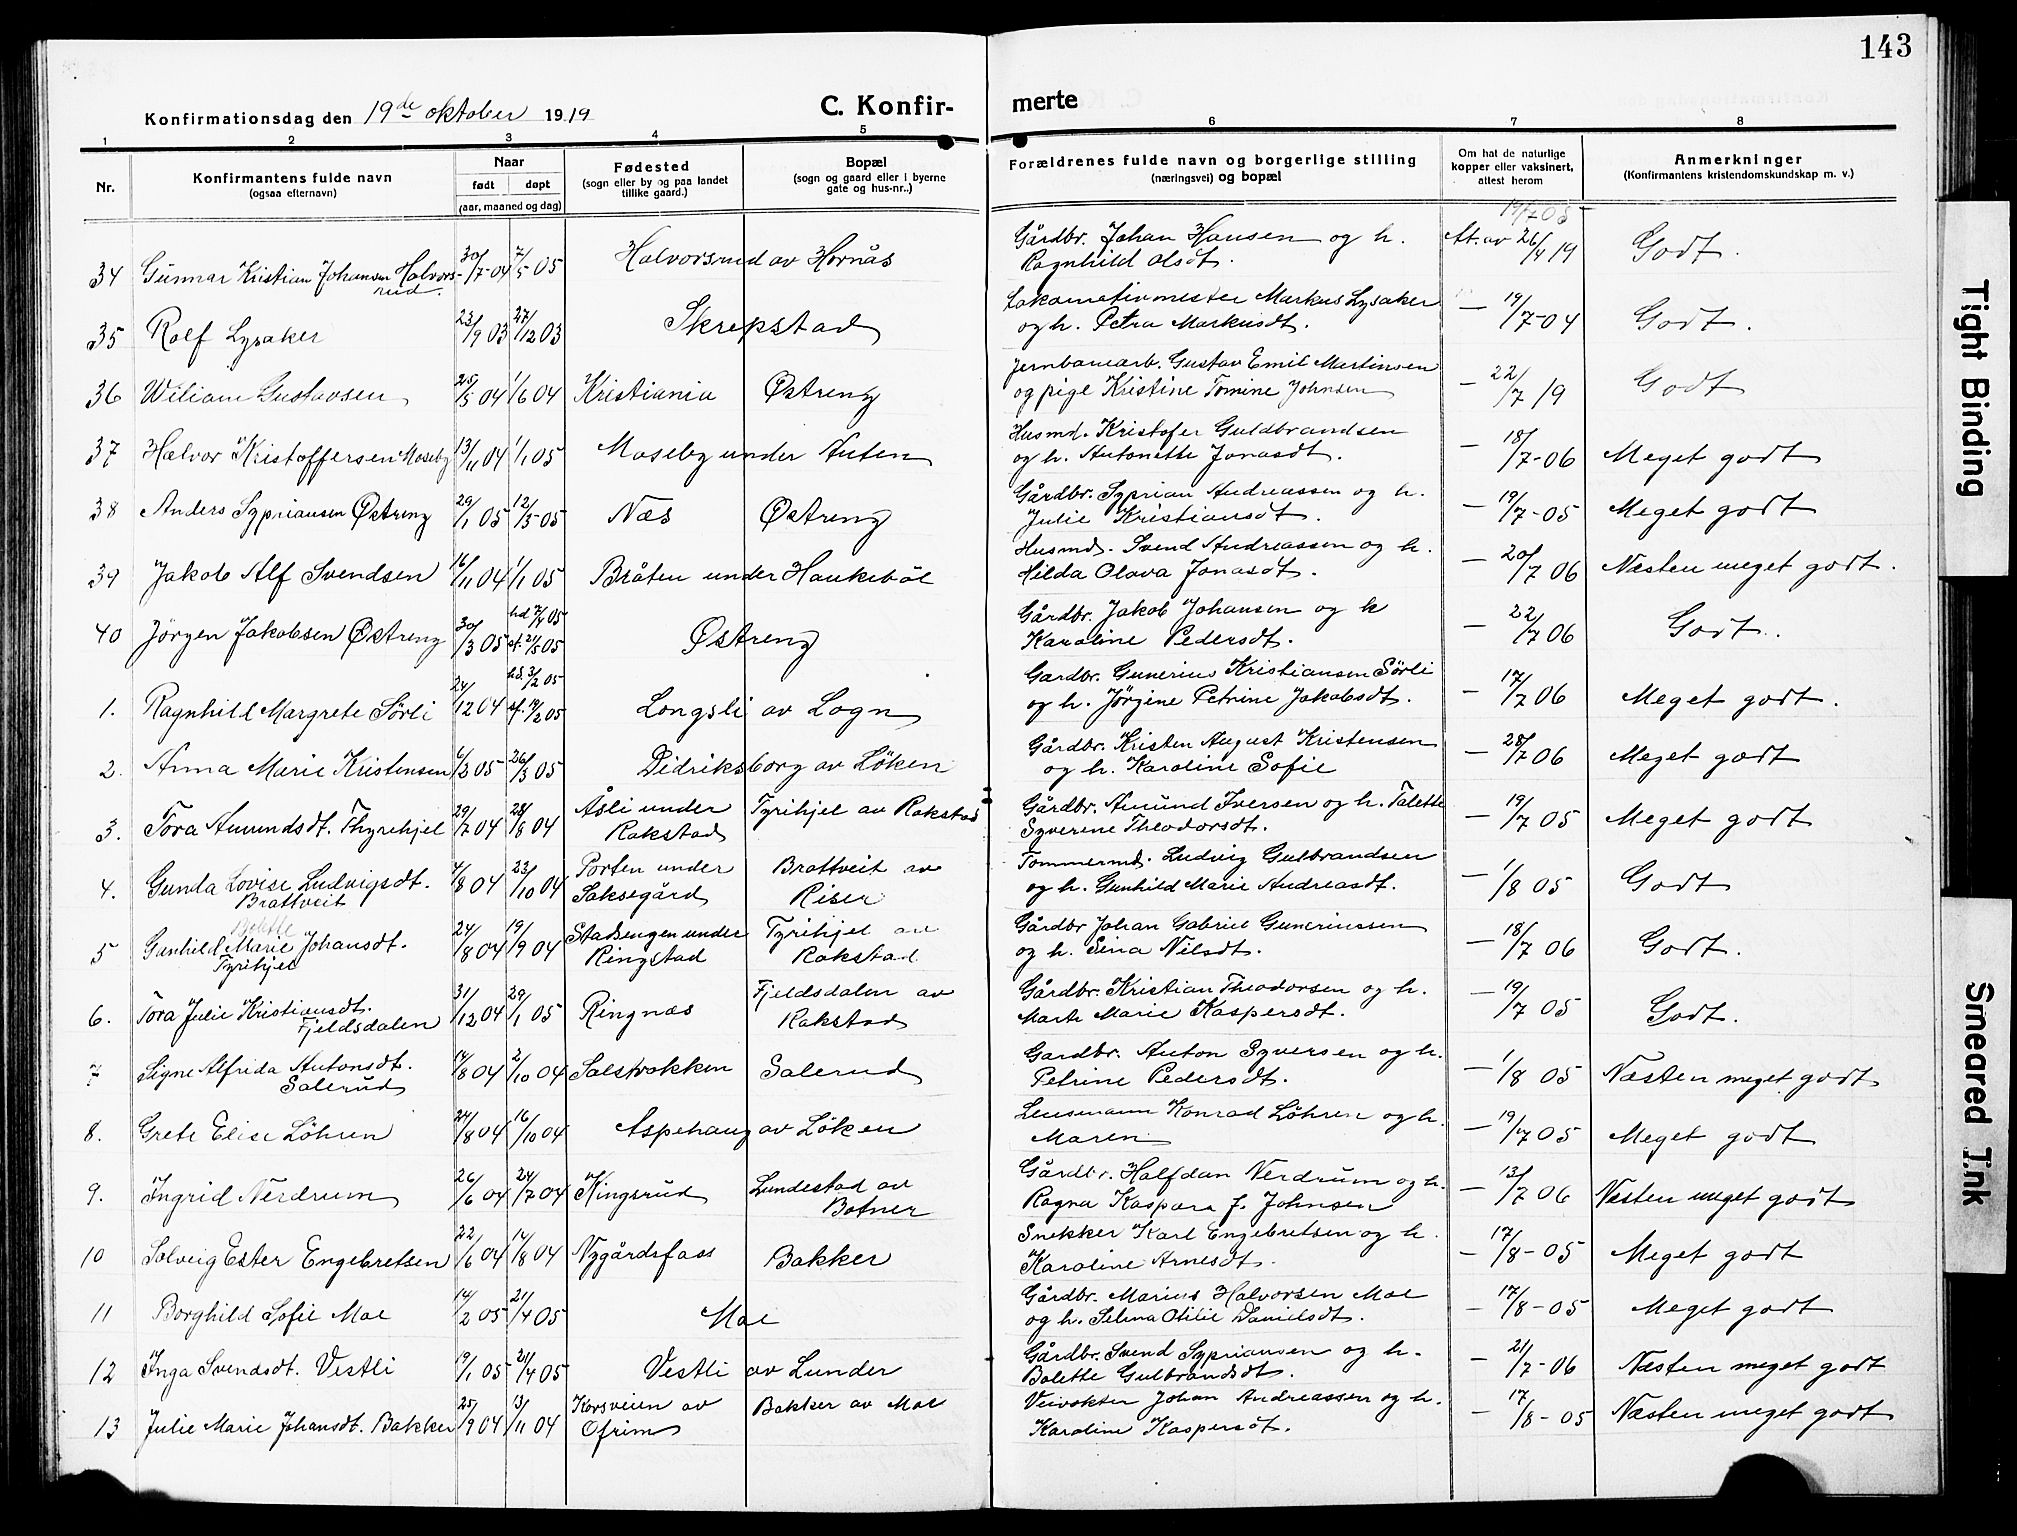 143
Konfirmationsdag den 19de oktober 1919
C. Konfir-
merte
1 2 3 4 5 6 7 8
Nr.
Konfirmantens fulde navn
(ogsaa efternavn)
Naar
født døpt
(aar, maaned og dag)
Fødested
(sogn eller by og paa landet
tillike gaard.)
Bopæl
(sogn og gaard eller i byerne
gate og hus-nr..)
Forældrenes fulde navn og borgerlige stilling
(næringsvei) og bopæl
Om hat de naturlige
kopper eller vaksinert,
attest herom
Anmerkninger
(Konfirmantens kristendomskundskap m. v.)
19/7 05
34 Gunnar Kristian Johansen Halvors- 30/7-04 7/5 05 Halvorsrud av Hornås Gårdbr. Johan Hansen og h. At. av 26/4 19 Godt.
rud. Ragnhild Olsdt.
35 Rolf Lysaker 23/9 03 27/12 03 Skrepstad Lokomotivmester Markus Lysaker — 19/7-04 Godt.
og h. Petra Markusdt.
36 Wiliam Gustavsen 25/5 04 1/6 04 Kristiania Østreng Jernbanearb. Gustav Emil Martinsen — 22/7 19 Godt
og pige Kristine Tomine Johnsen
37 Halvor Kristoffersen Moseby 13/11 04 1/1 05 Moseby under Auten Husmd. Kristofer Guldbrandsen — 18/7-06 Meget godt
og h. Antonette Jonasdt.
38 Anders Sypriansen Østreng 29/1 05 12/3-05 Næs Østreng Gårdbr. Syprian Andreassen og h. — 19/7-05 Meget godt
Julie Kristiansdt.
39 Jakob Alf Svendsen 16/11 04 1/1 05 Bråten under Haukebøl Husmd. Svend Andreassen og h. — 20/7 06 Næsten meget godt.
Hilda Olava Jonasdt.
40 Jörgen Jakobsen Østreng 30/3 05 hd 7/4 05 Østreng Gårdbr. Jakob Johansen og h — 22/7 06 Godt.
st. 21/5 05 Karoline Pedersdt.
1. Ragnhild Margrete Sörli 24/12 04 hd. 3/2 05 Longsli av Logn Gardbr. Gunerius Kristiansen Sörli — 17/7 06 Meget godt.
og h. Jörgine Petrine Jakobsdt.
2. Anna Marie Kristensen 6/2 05 26/3 05 Didriksborg av Löken Gårdbr. Kristen August Kristensen — 28/7 06 Meget godt
og h. Karoline Sofie
3. Tora Amundsdt. Thyrihjel 29/7 04 28/8 04 Åsli under Tyrihjel av Rakstad Gårdbr. Amund Iversen og h. Talette — 19/7 05 Meget godt
Rakstad Syverine Theodorsdt.
4. Gunda Lovise Ludvigsdt. 4/8 04 23/10 04 Porten under Brattveit av Tommermd. Ludvig Gulbrandsen — 1/8 05 Godt
Brattveit Saksegård Riser og h. Gunhild Marie Andreasdt.
Bolette
5 Gunhild Marie Johansdt. 24/8 04 19/9 04 Stadsengen under Tyrihjel av Gårdbr Johan Gabriel Guneriussen — 18/7 06 Godt.
Tyrihjel Ringstad Rakstad og h. Sina Nilsdt.
6. Tora Julie Kristiansdt. 31/12 04 29/1 05 Ringnæs Fjeldsdalen av Gårdbr. Kristian Theodorsen og h. — 19/7 05 Godt.
Fjeldsdalen Rakstad Marte Marie Kaspersdt.
7 Signe Alfrida Antonsdt. 14/8 04 2/10 04 Salsbakken Salerud Gardbr. Anton Syversen og h. — 1/8 05 Næsten meget godt
Salerud Petrine Pedersdt.
8. Grete Elise Löhren 24/8 04 16/10 04 Aspehaug av Löken Lensmann Konrad Löhren og h. — 19/7 05 Meget godt
Maren
9. Ingrid Nerdrum 26/6 04 24/7 04 Kingsrud Lundestad av Gårdbr. Halfdan Nerdrum og h. — 13/7 06 Næsten meget godt
Botner Ragna Kaspara f. Johnsen
10 Solveig Ester Engebretsen 22/6 04 14/8 04 Nygårdsfass Bakker Snekker Karl Engebretsen og h. — 17/8-05 Meget godt
Karoline Arnesdt.
11 Borghild Sofie Moe 14/2 05 21/4 05 Moe Gårdbr. Marius Halvorsen Moe — 17/8-05 Meget godt
og h. Selma Otilie Danielsdt.
12 Inga Svendsdt. Vestli 19/1 05 21/4 05 Vestli av Lunder Gårdbr. Svend Sypriansen og h. — 21/7-06 Næsten meget godt
Bolette Gulbrandsdt.
13 Julie Marie Johansdt. Bakker 25/9 04 13/11 04 Korsveien av Bakker av Moe Veivokter Johan Andreassen og h. — 17/8-05 Næsten meget godt
Ofrim Karoline Kaspersdt.
Tight Binding
Smeared Ink